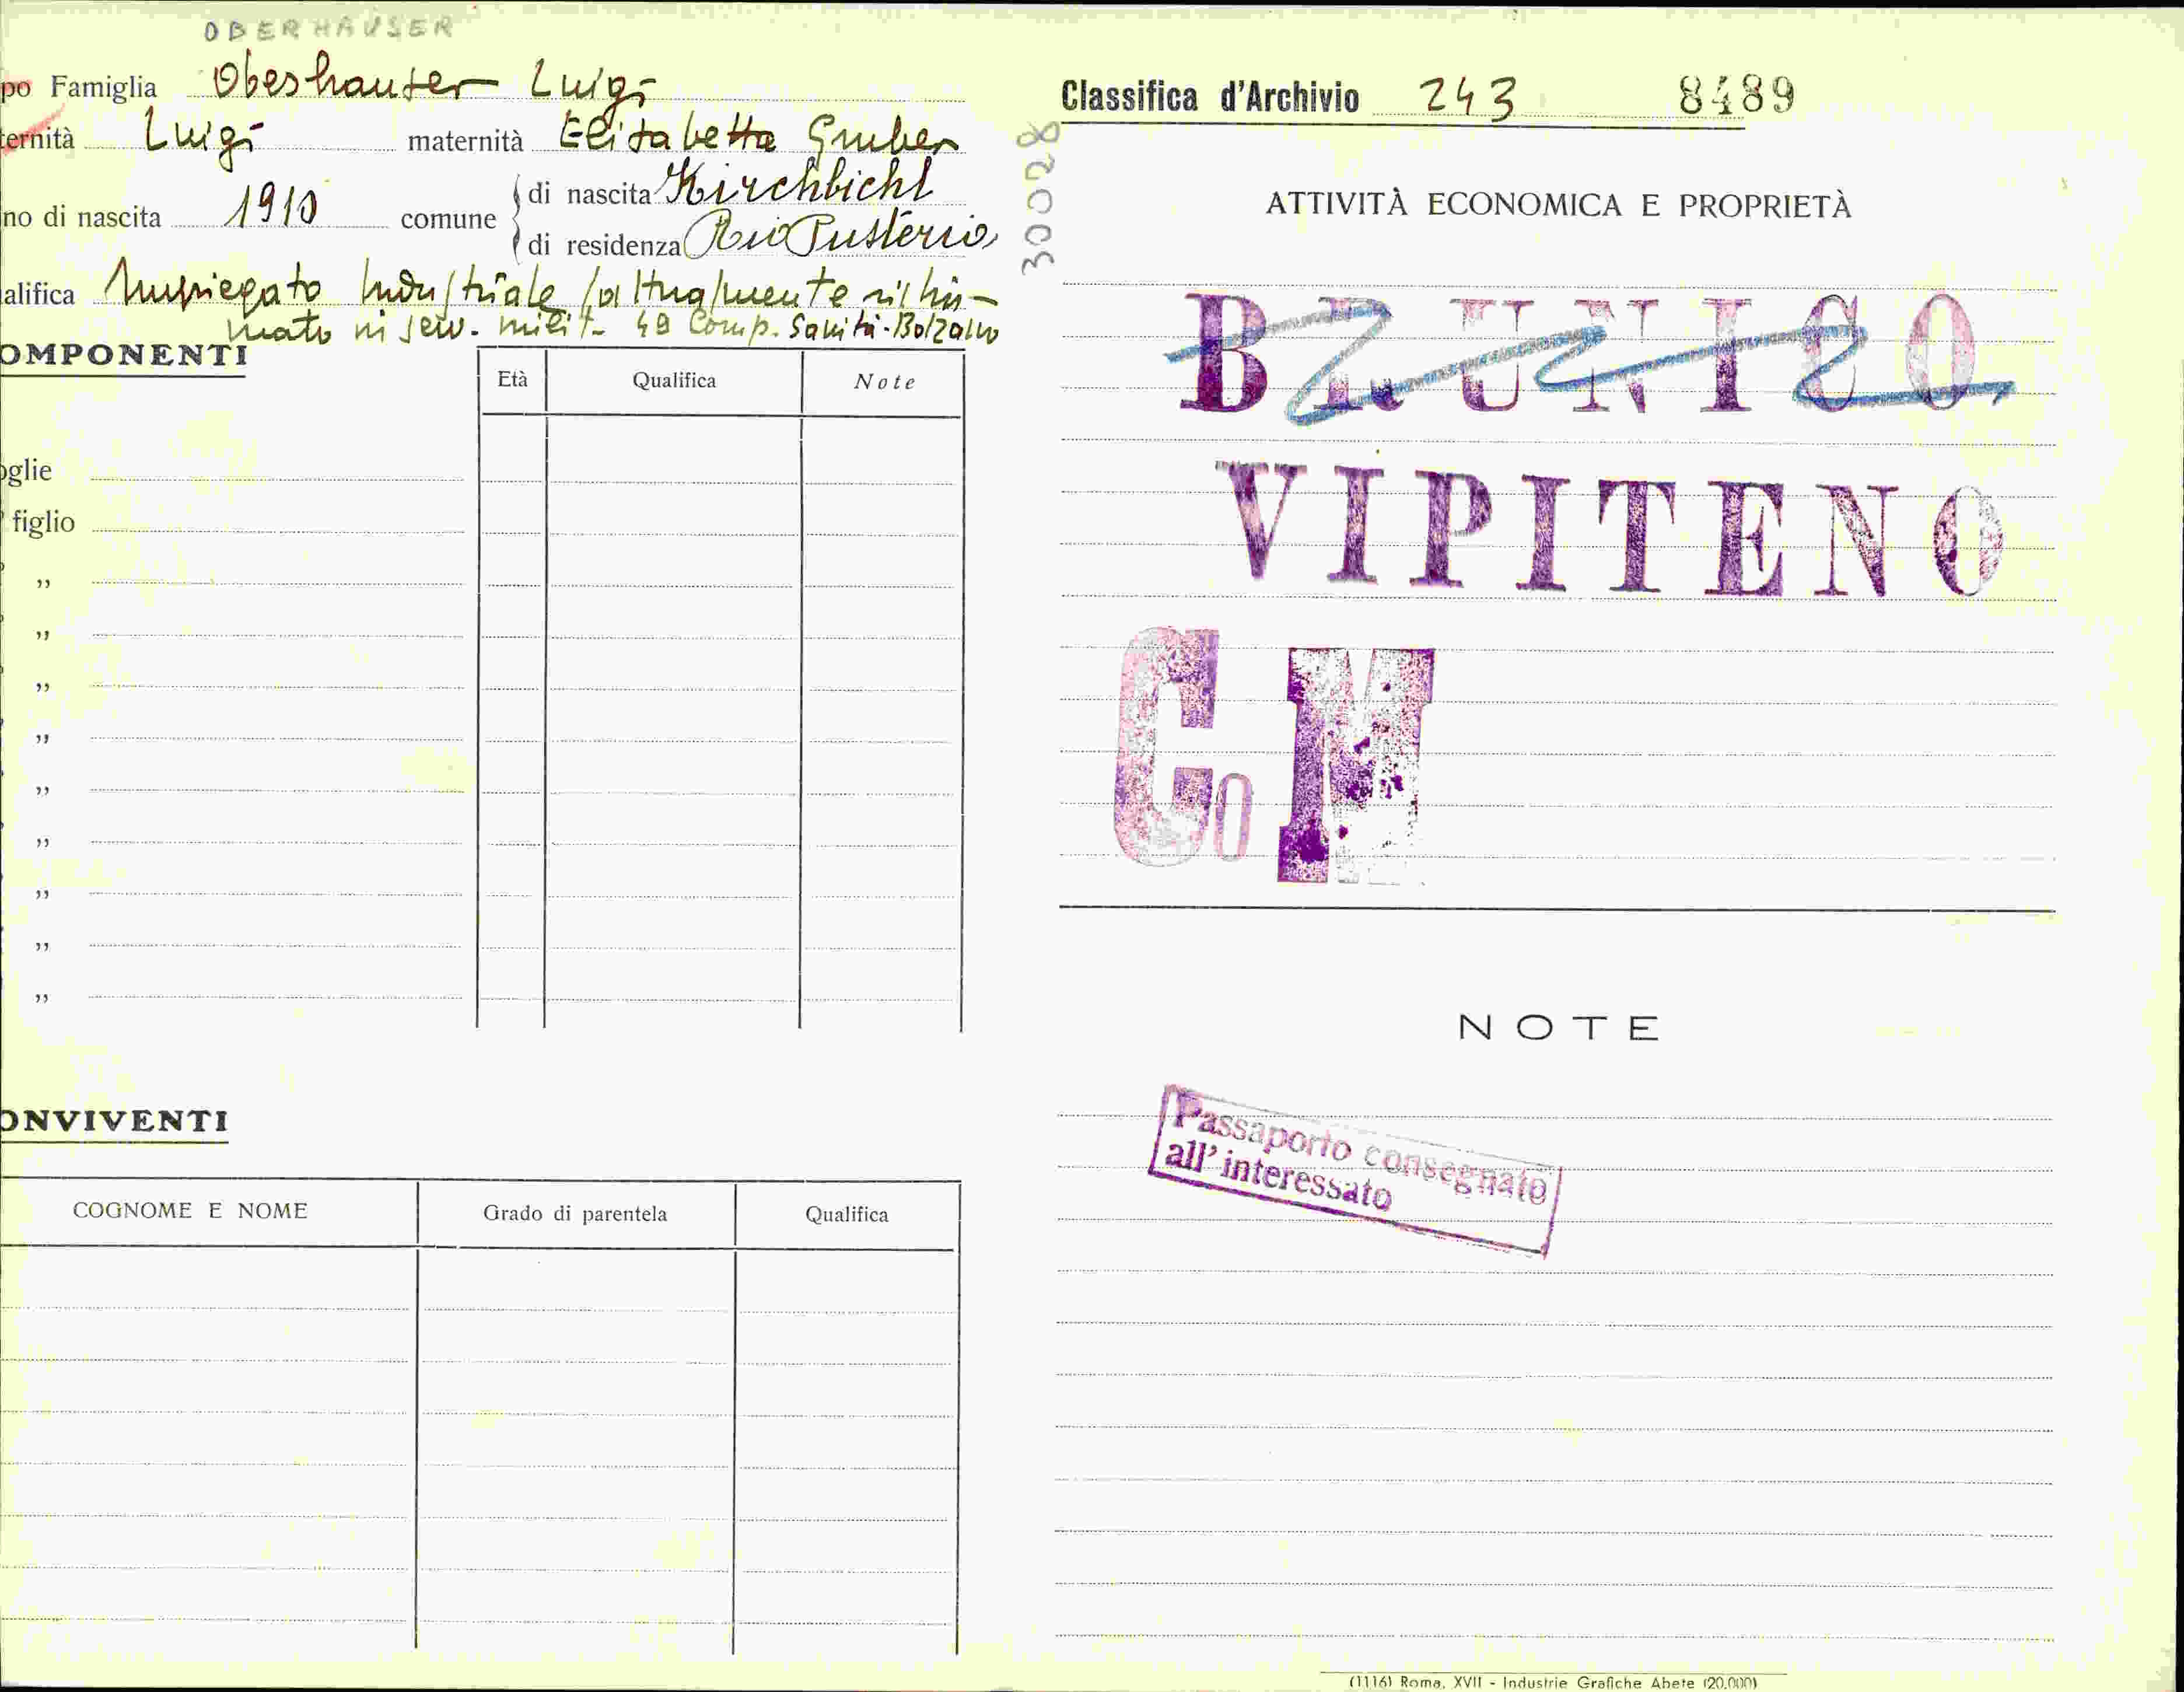 OBERHAUSER
po Famiglia Oberhauser Luigi
ternità Luigi maternità Elisabetta Gruber
no di nascita 1910 comune di nascita Kirchbichl
di residenza Rio Pusteria
alifica Impiegato Industriale (attualmente richia-
mato in serv. milit. 4a Comp. Sanità-Bolzano
OMPONENTI
Età Qualifica Note
oglie
figlio
"
"
"
"
"
"
"
"
"
ONVIVENTI
COGNOME E NOME Grado di parentela Qualifica
30028
Classifica d'Archivio 243 8489
ATTIVITÀ ECONOMICA E PROPRIETÀ
BRUNICO
VIPITENO
Co M
NOTE
Passaporto consegnato
all'interessato
(1116) Roma, XVII - Industrie Grafiche Abete (20.000)